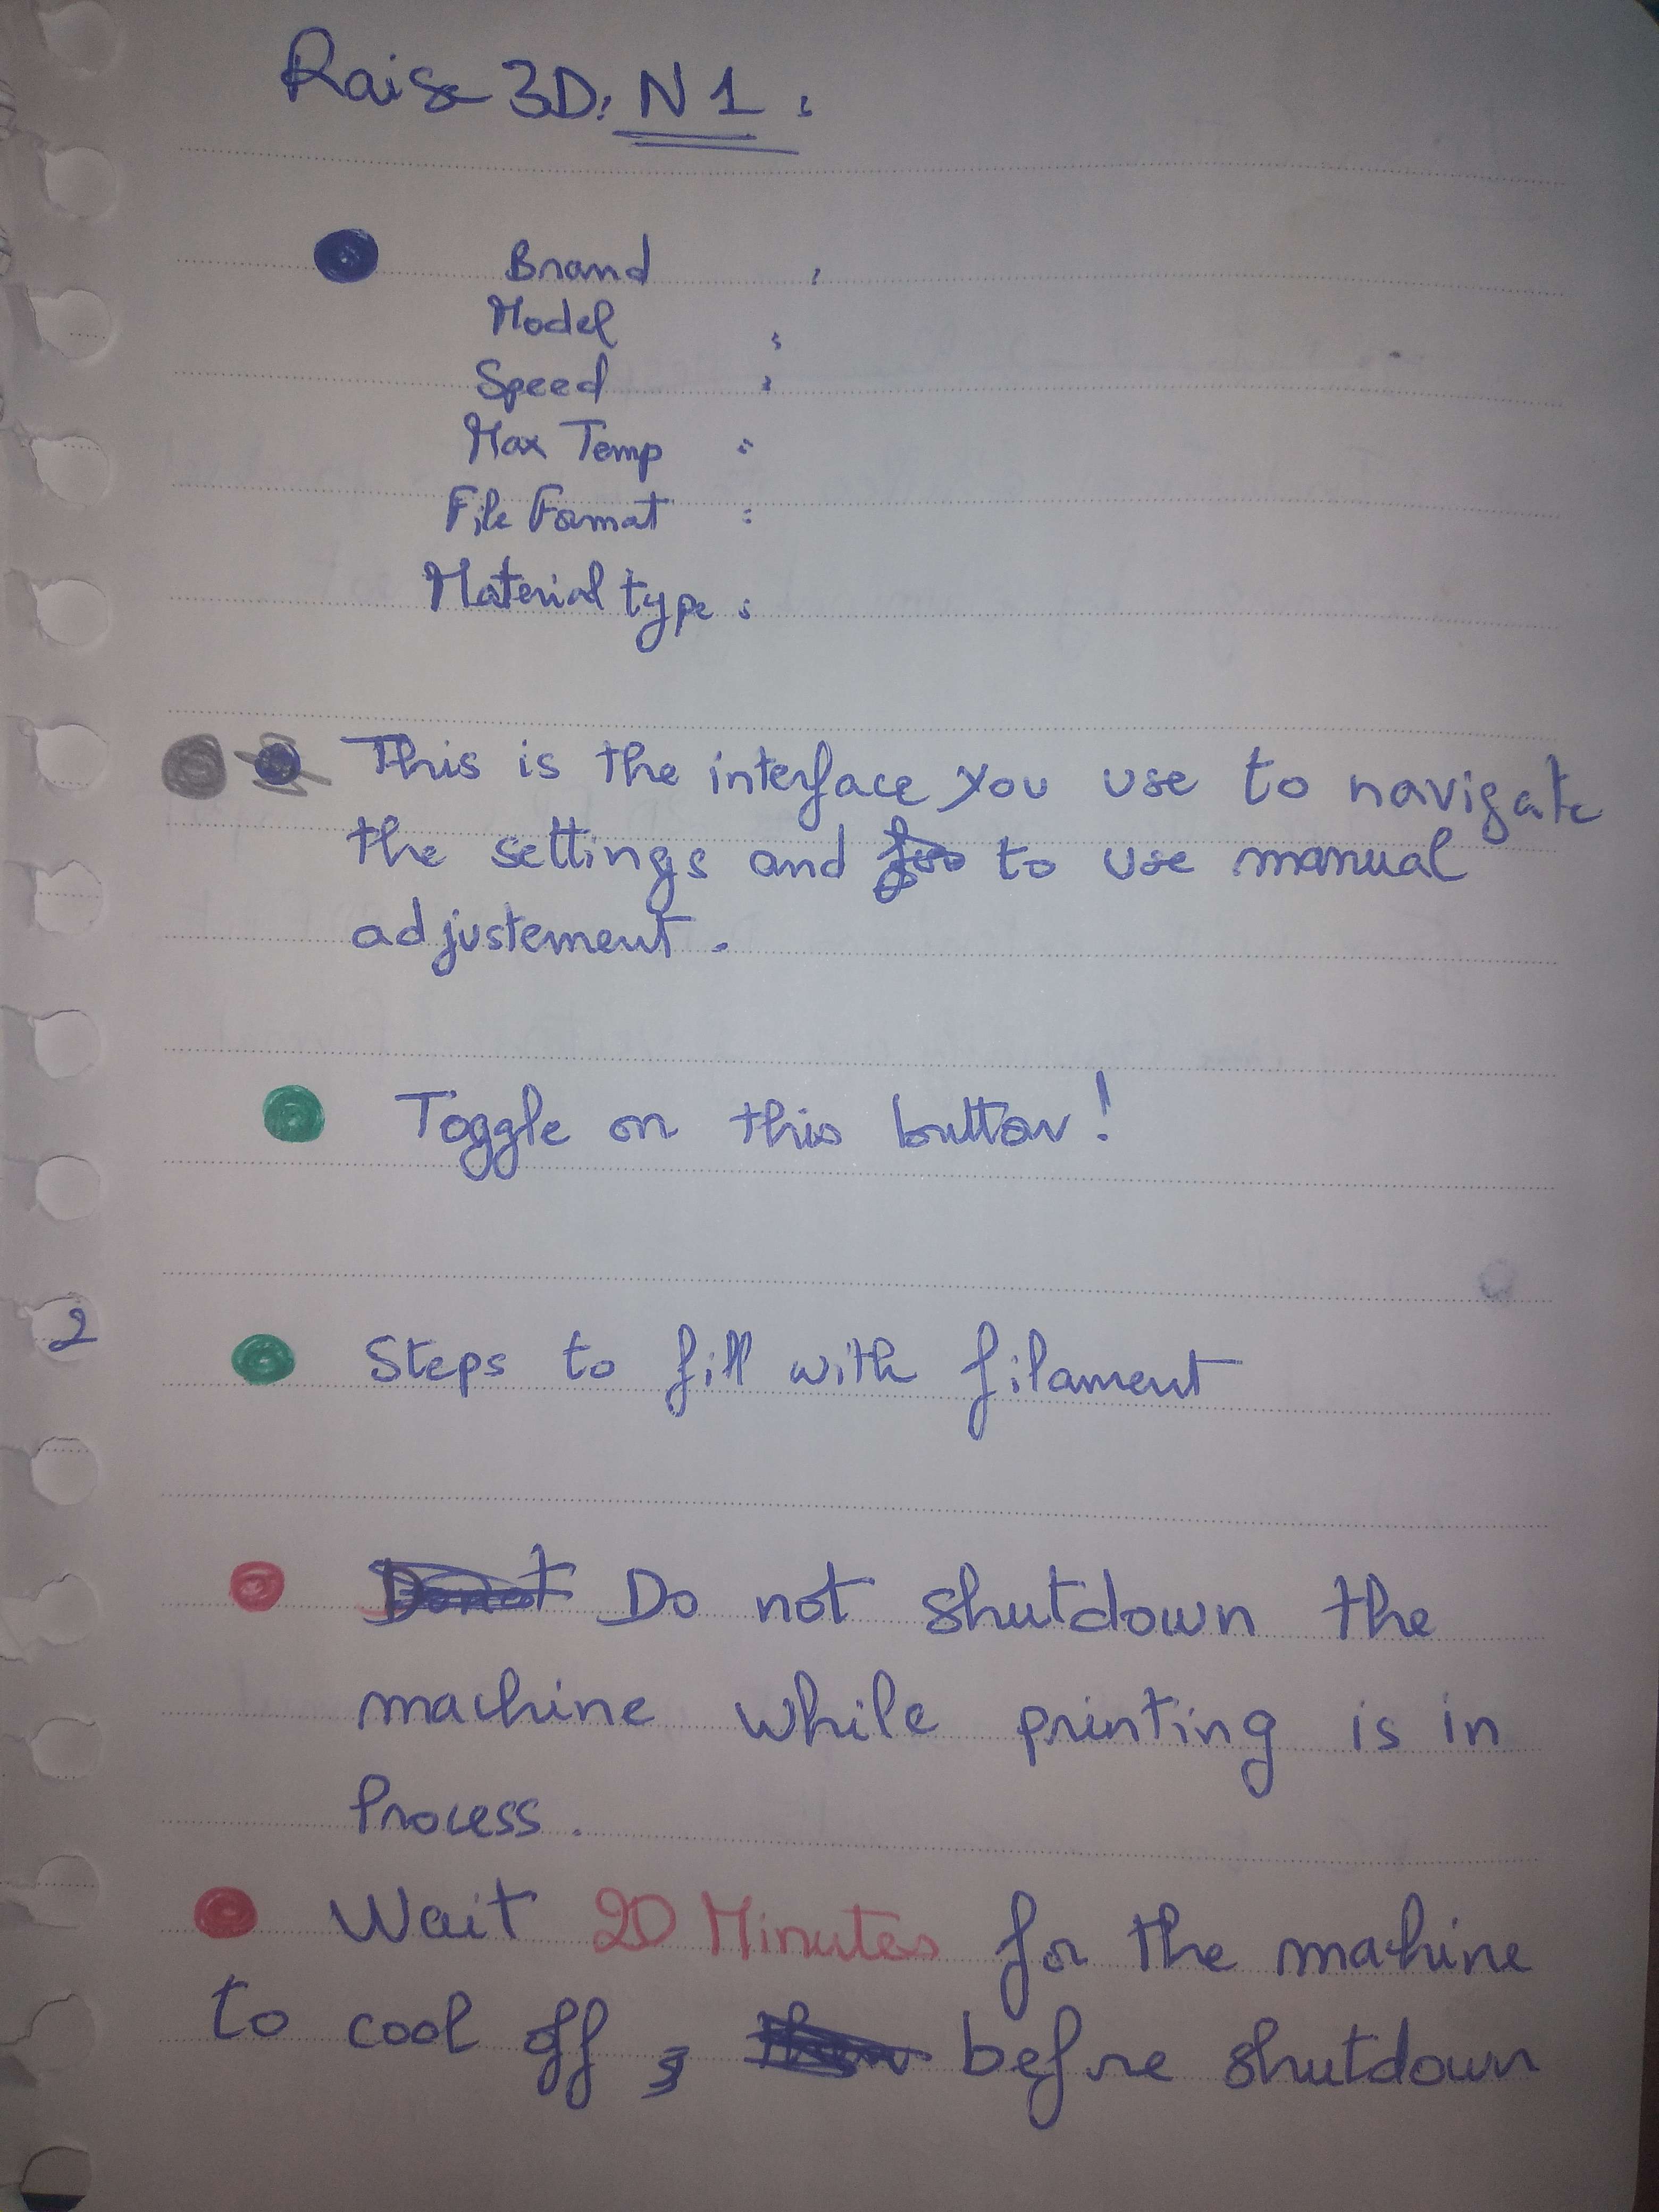 Raise 3D: N 1 :
Brand :
Model :
Speed :
Max Temp :
File Format :
Material type :
This is the interface you use to navigate
the settings and to use manual
adjustement.
Toggle on this button!
2
Steps to fill with filament
Do not Do not shutdown the
machine while printing is in
Process.
Wait 20 Minutes for the machine
to cool off , before shutdown